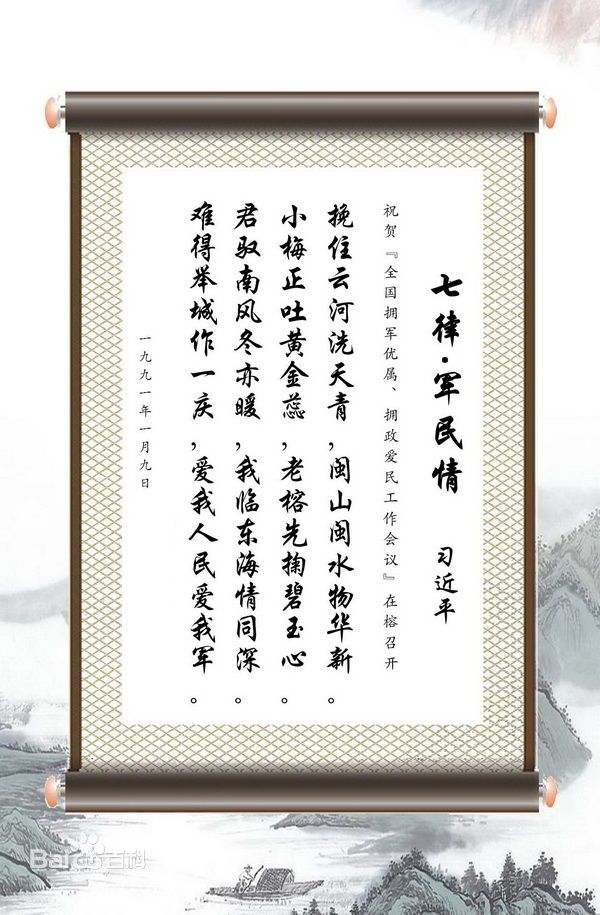 七律·军民情 习近平
祝贺『全国拥军优属、拥政爱民工作会议』在榕召开
挽住云河洗天青，闽山闽水物华新。
小梅正吐黄金蕊，老榕先掬碧玉心。
君驭南风冬亦暖，我临东海情同深。
难得举城作一庆，爱我人民爱我军。
一九九一年一月九日
Baidu百科